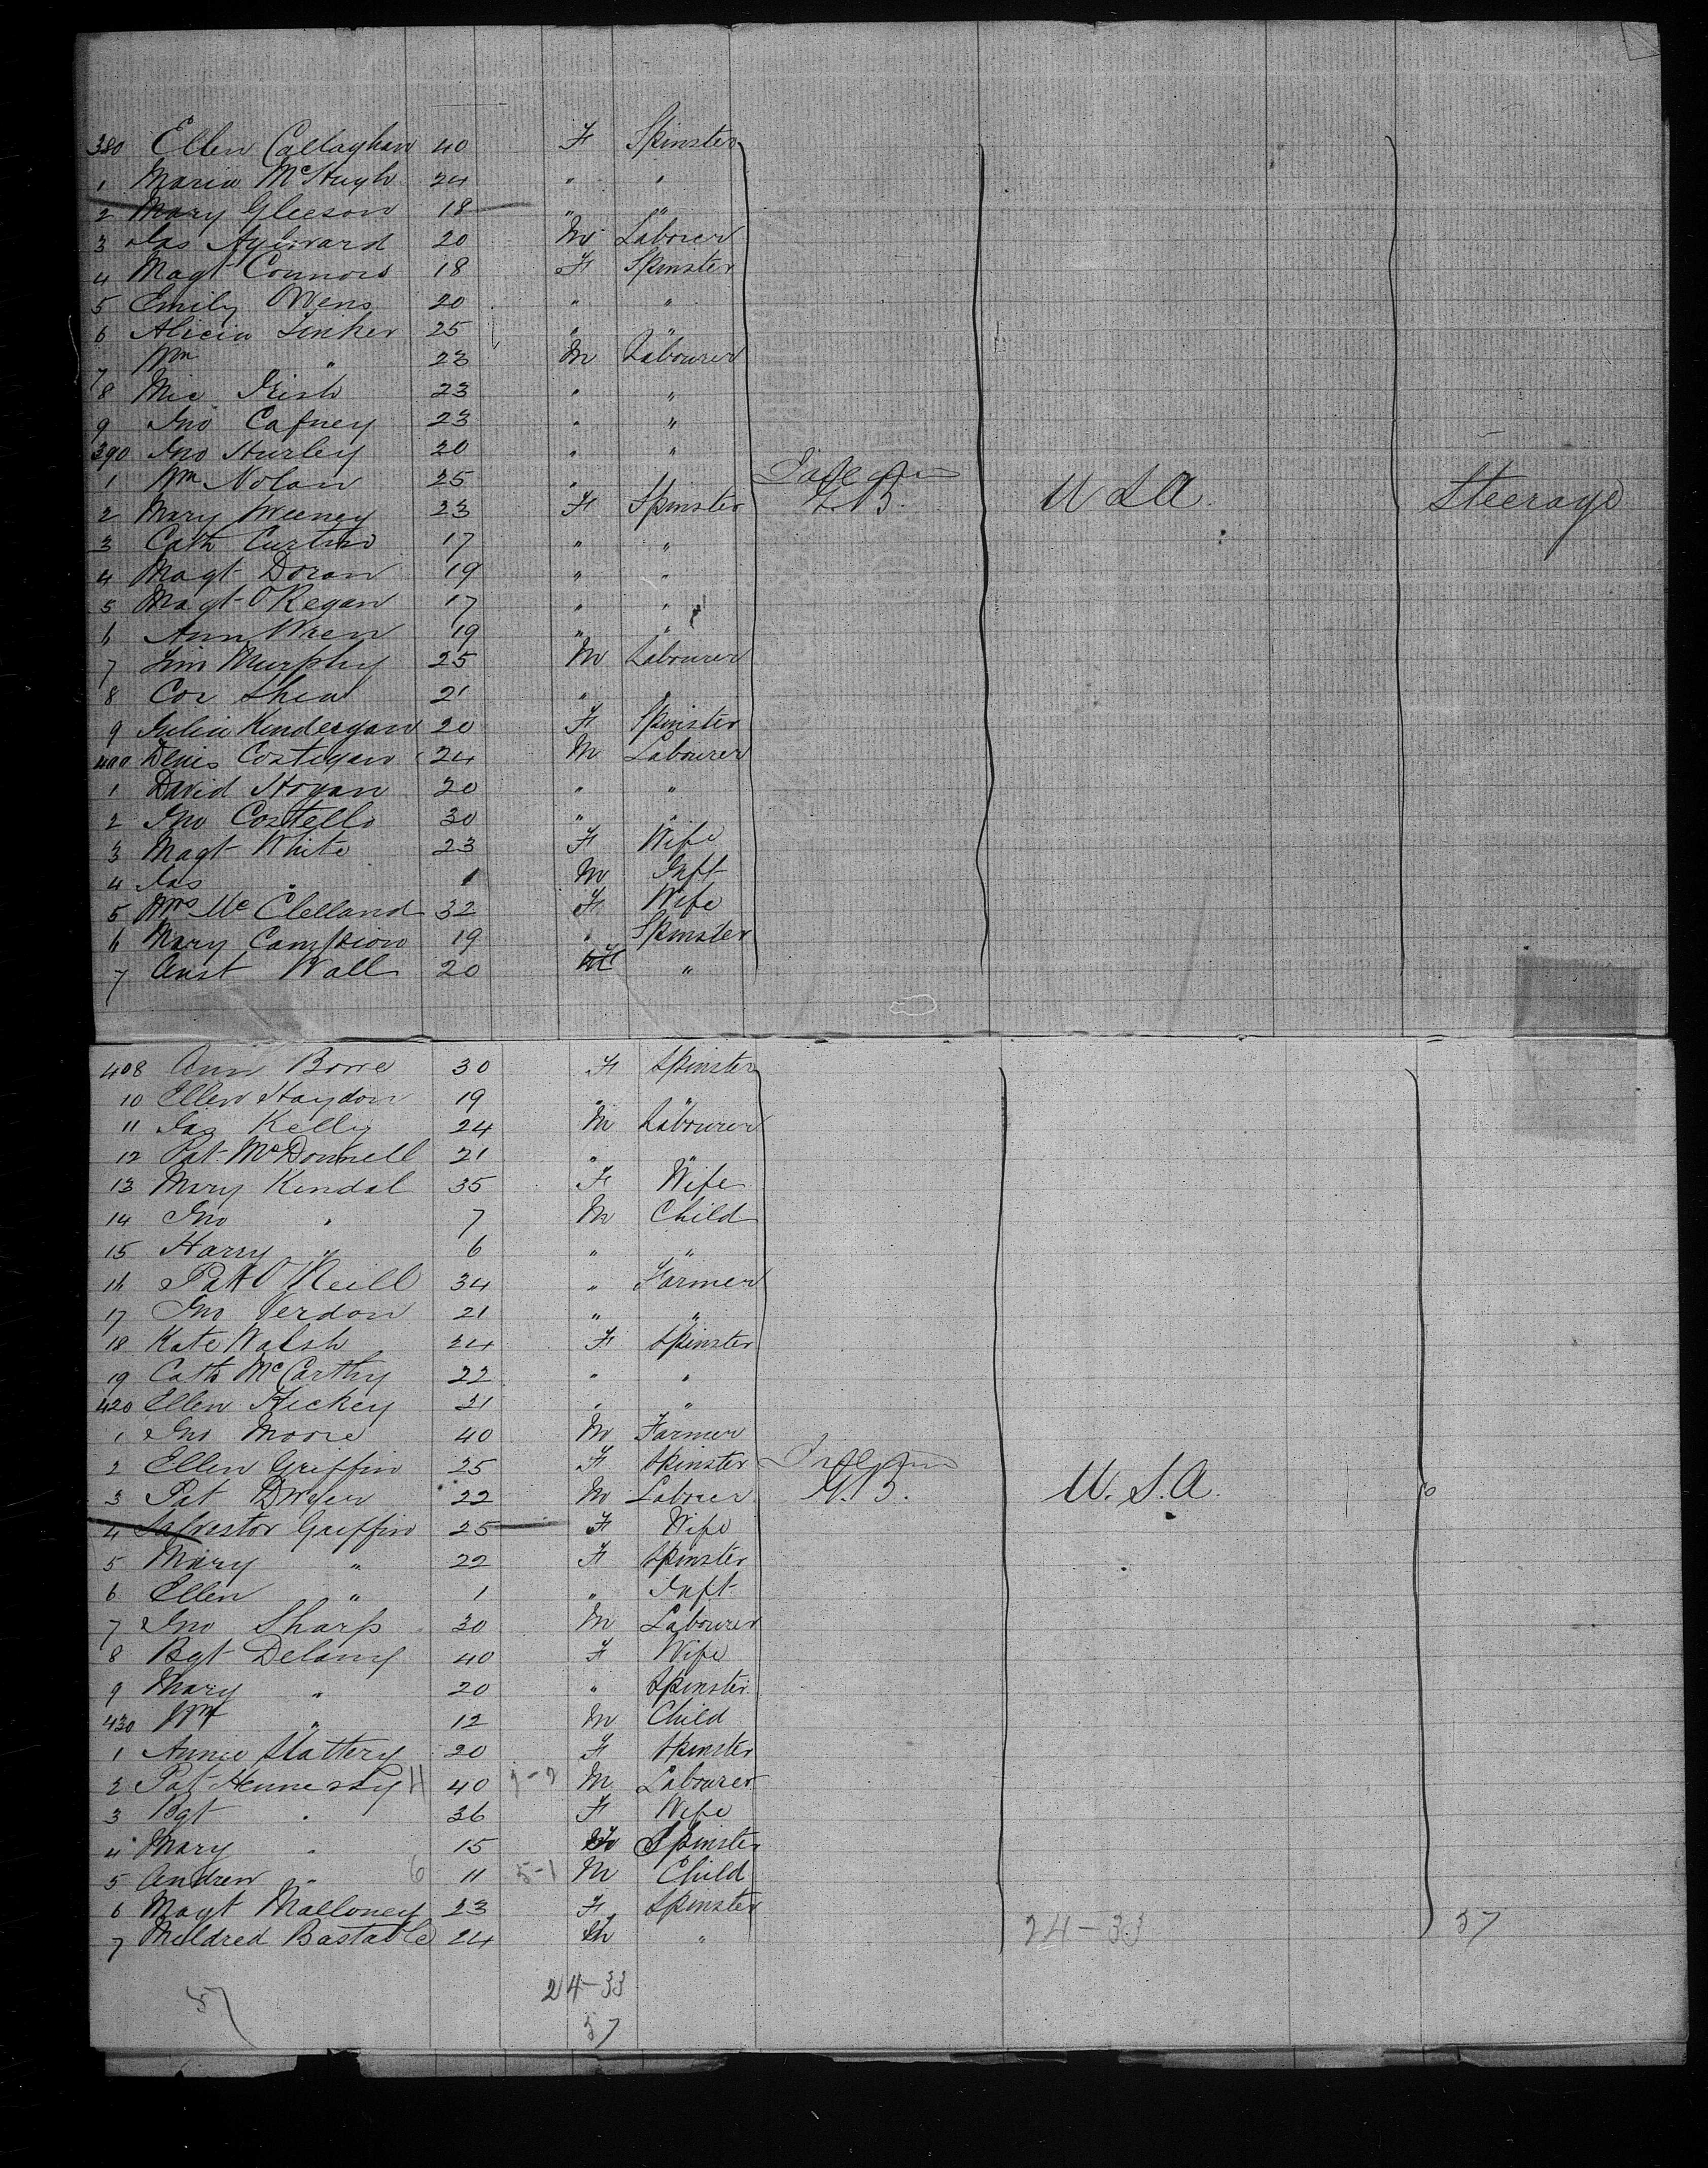 380 Ellen Callaghan 40 F Spinster
1 Maria McHugh 24 " "
2 Mary Gleeson 18 " "
3 Jas Aylward 20 M Laborer
4 Magt Connors 18 F Spinster
5 Emily Owens 20 " "
6 Alicia Tinker 25 " "
7 Wm " 23 M Labourer
8 Mic Irish 23 " "
9 Jno Cafney 23 " "
390 Jno Hurley 20 " "
1 Wm Nolan 25 "
2 Mary Weeney 23 F Spinster G.B. U S A. Steerage
3 Cath Curtin 17 " "
4 Magt Doran 19 " "
5 Magt O'Regan 17 " "
6 Ann Wren 19 " "
7 Tim Murphy 25 M Labourer
8 Cor Shea 21 " "
9 Julia Kindergan 20 F Spinster
400 Denis Costigan 24 M Labourer
1 David Hogan 20 " "
2 Jno Costello 30 " "
3 Magt White 23 F Wife
4 Jas " 1 M Inft
5 Mrs McClelland 32 F Wife
6 Mary Campion 19 " Spinster
7 Anst Wall 20 F "
408 Ann Borre 30 F Spinster
10 Ellen Haydon 19 " "
11 Jas Kelly 24 M Labourer
12 Pat McDonnell 21 " "
13 Mary Kendal 35 F Wife
14 Jno " 7 M Child
15 Harry " 6 " "
16 Pat O'Neill 34 " Farmer
17 Jno Verdon 21 " "
18 Kate Walsh 24 F Spinster
19 Cath McCarthy 22 " "
420 Ellen Hickey 21 " "
1 Jno Moore 40 M Farmer
2 Ellen Griffin 25 F Spinster
3 Pat Dwyer 22 M Laborer G.B. U.S.A.
4 Sylvestor Griffin 25 F Wife
5 Mary " 22 F Spinster
6 Ellen " 1 " Inft
7 Jno Sharp 30 M Labourer
8 Bgt Delany 40 F Wife
9 Mary " 20 " Spinster
430 Wm " 12 M Child
1 Annie Slattery 20 F Spinster
2 Pat Hennessy 40 M Labourer
3 Bgt " 36 F Wife
4 Mary " 15 F Spinster
5 Andrew " 6 11 5-1 M Child
6 Magt Malloney 23 F Spinster
7 Mildred Bastable 24 "
24-33 57
24-33
57
57